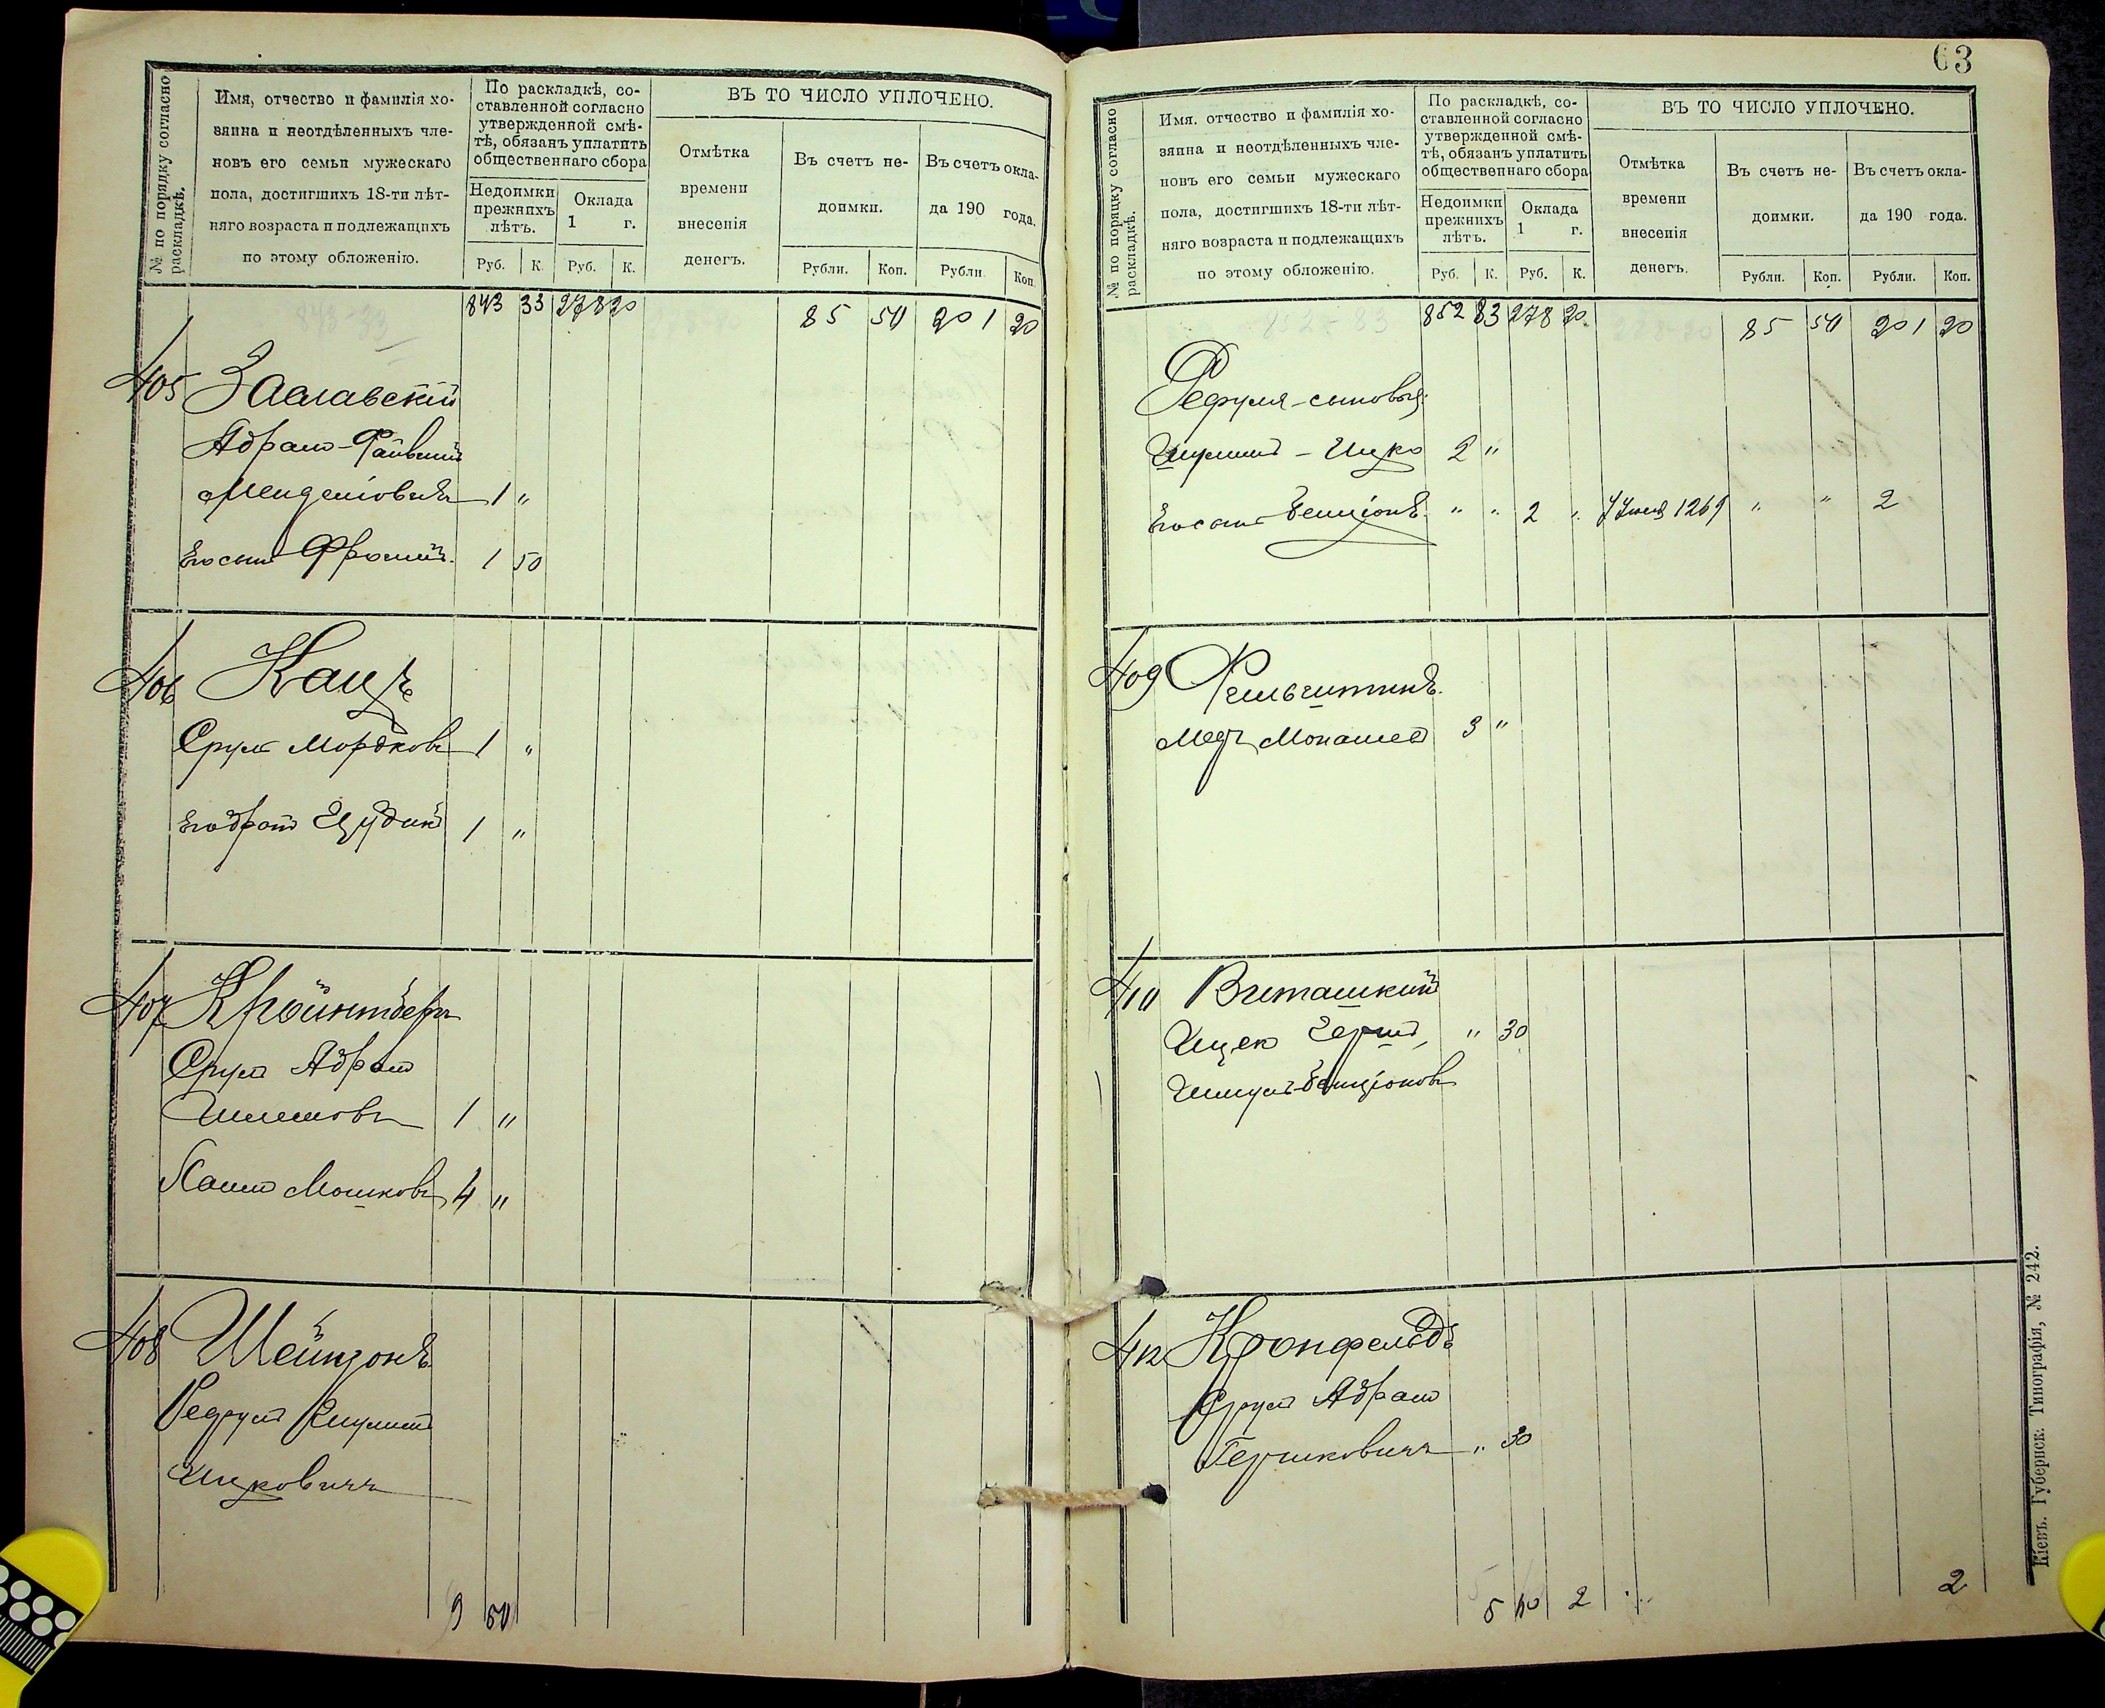 № по порядку согласно раскладкѣ.
Имя, отчество и фамилія хо-
зяина и неотдѣленныхъ чле-
новъ его семьи мужескаго
пола, достигшихъ 18-ти лѣт-
няго возраста и подлежащихъ
по этому обложенію.
По раскладкѣ, со-
ставленной согласно
утвержденной смѣ-
тѣ, обязанъ уплатить
общественнаго сбора
Недоимки
прежнихъ
лѣтъ.
Оклада
1 г.
Руб. К. Руб. К.
ВЪ ТО ЧИСЛО УПЛОЧЕНО.
Отмѣтка
времени
внесенія
денегъ.
Въ счетъ не-
доимки.
Въ счетъ окла-
да 190 года.
Рубли. Коп. Рубли Коп.
843 33 278 20 85 50 201 20
405 Заславскій
Абрам-Файвиш
Менделіовичъ 1 "
Его сын Фроим 1 50
406 Кацъ
Срул Мордков 1 "
Его брат 1 "
407 Кройнтберг
Срул Абрам
1 "
Мошков 4 "
408 Шейнзонъ
Рефул Шулим
Ицкович
9 50
63
№ по порядку согласно раскладкѣ.
Имя. отчество и фамилія хо-
зяина и неотдѣленныхъ чле-
новъ его семьи мужескаго
пола, достигшихъ 18-ти лѣт-
няго возраста и подлежащихъ
по этому обложенію.
По раскладкѣ, со-
ставленной согласно
утвержденной смѣ-
тѣ, обязанъ уплатить
общественнаго сбора
Недоимки
прежнихъ
лѣтъ.
Оклада
1 г.
Руб. К. Руб. К.
ВЪ ТО ЧИСЛО УПЛОЧЕНО.
Отмѣтка
времени
внесенія
денегъ.
Въ счетъ не-
доимки.
Въ счетъ окла-
да 190 года.
Рубли. Коп. Рубли. Коп.
852 83 278 20 85 50 201 20
Рефуля-сыновья:
Шулим - Ицко 2 "
Его сын Бенціонъ " " 2 " 1269 " " 2
409 Фельштинъ
Меер Монашев 3 "
410 Виташкий
Ицек Герш " 30
Шмул-Бенціонов
412 Кронфельдъ
Срул Абрам
Гершкович " 30
5 60 2 2
Кіевъ. Губернск. Типографія, № 242.